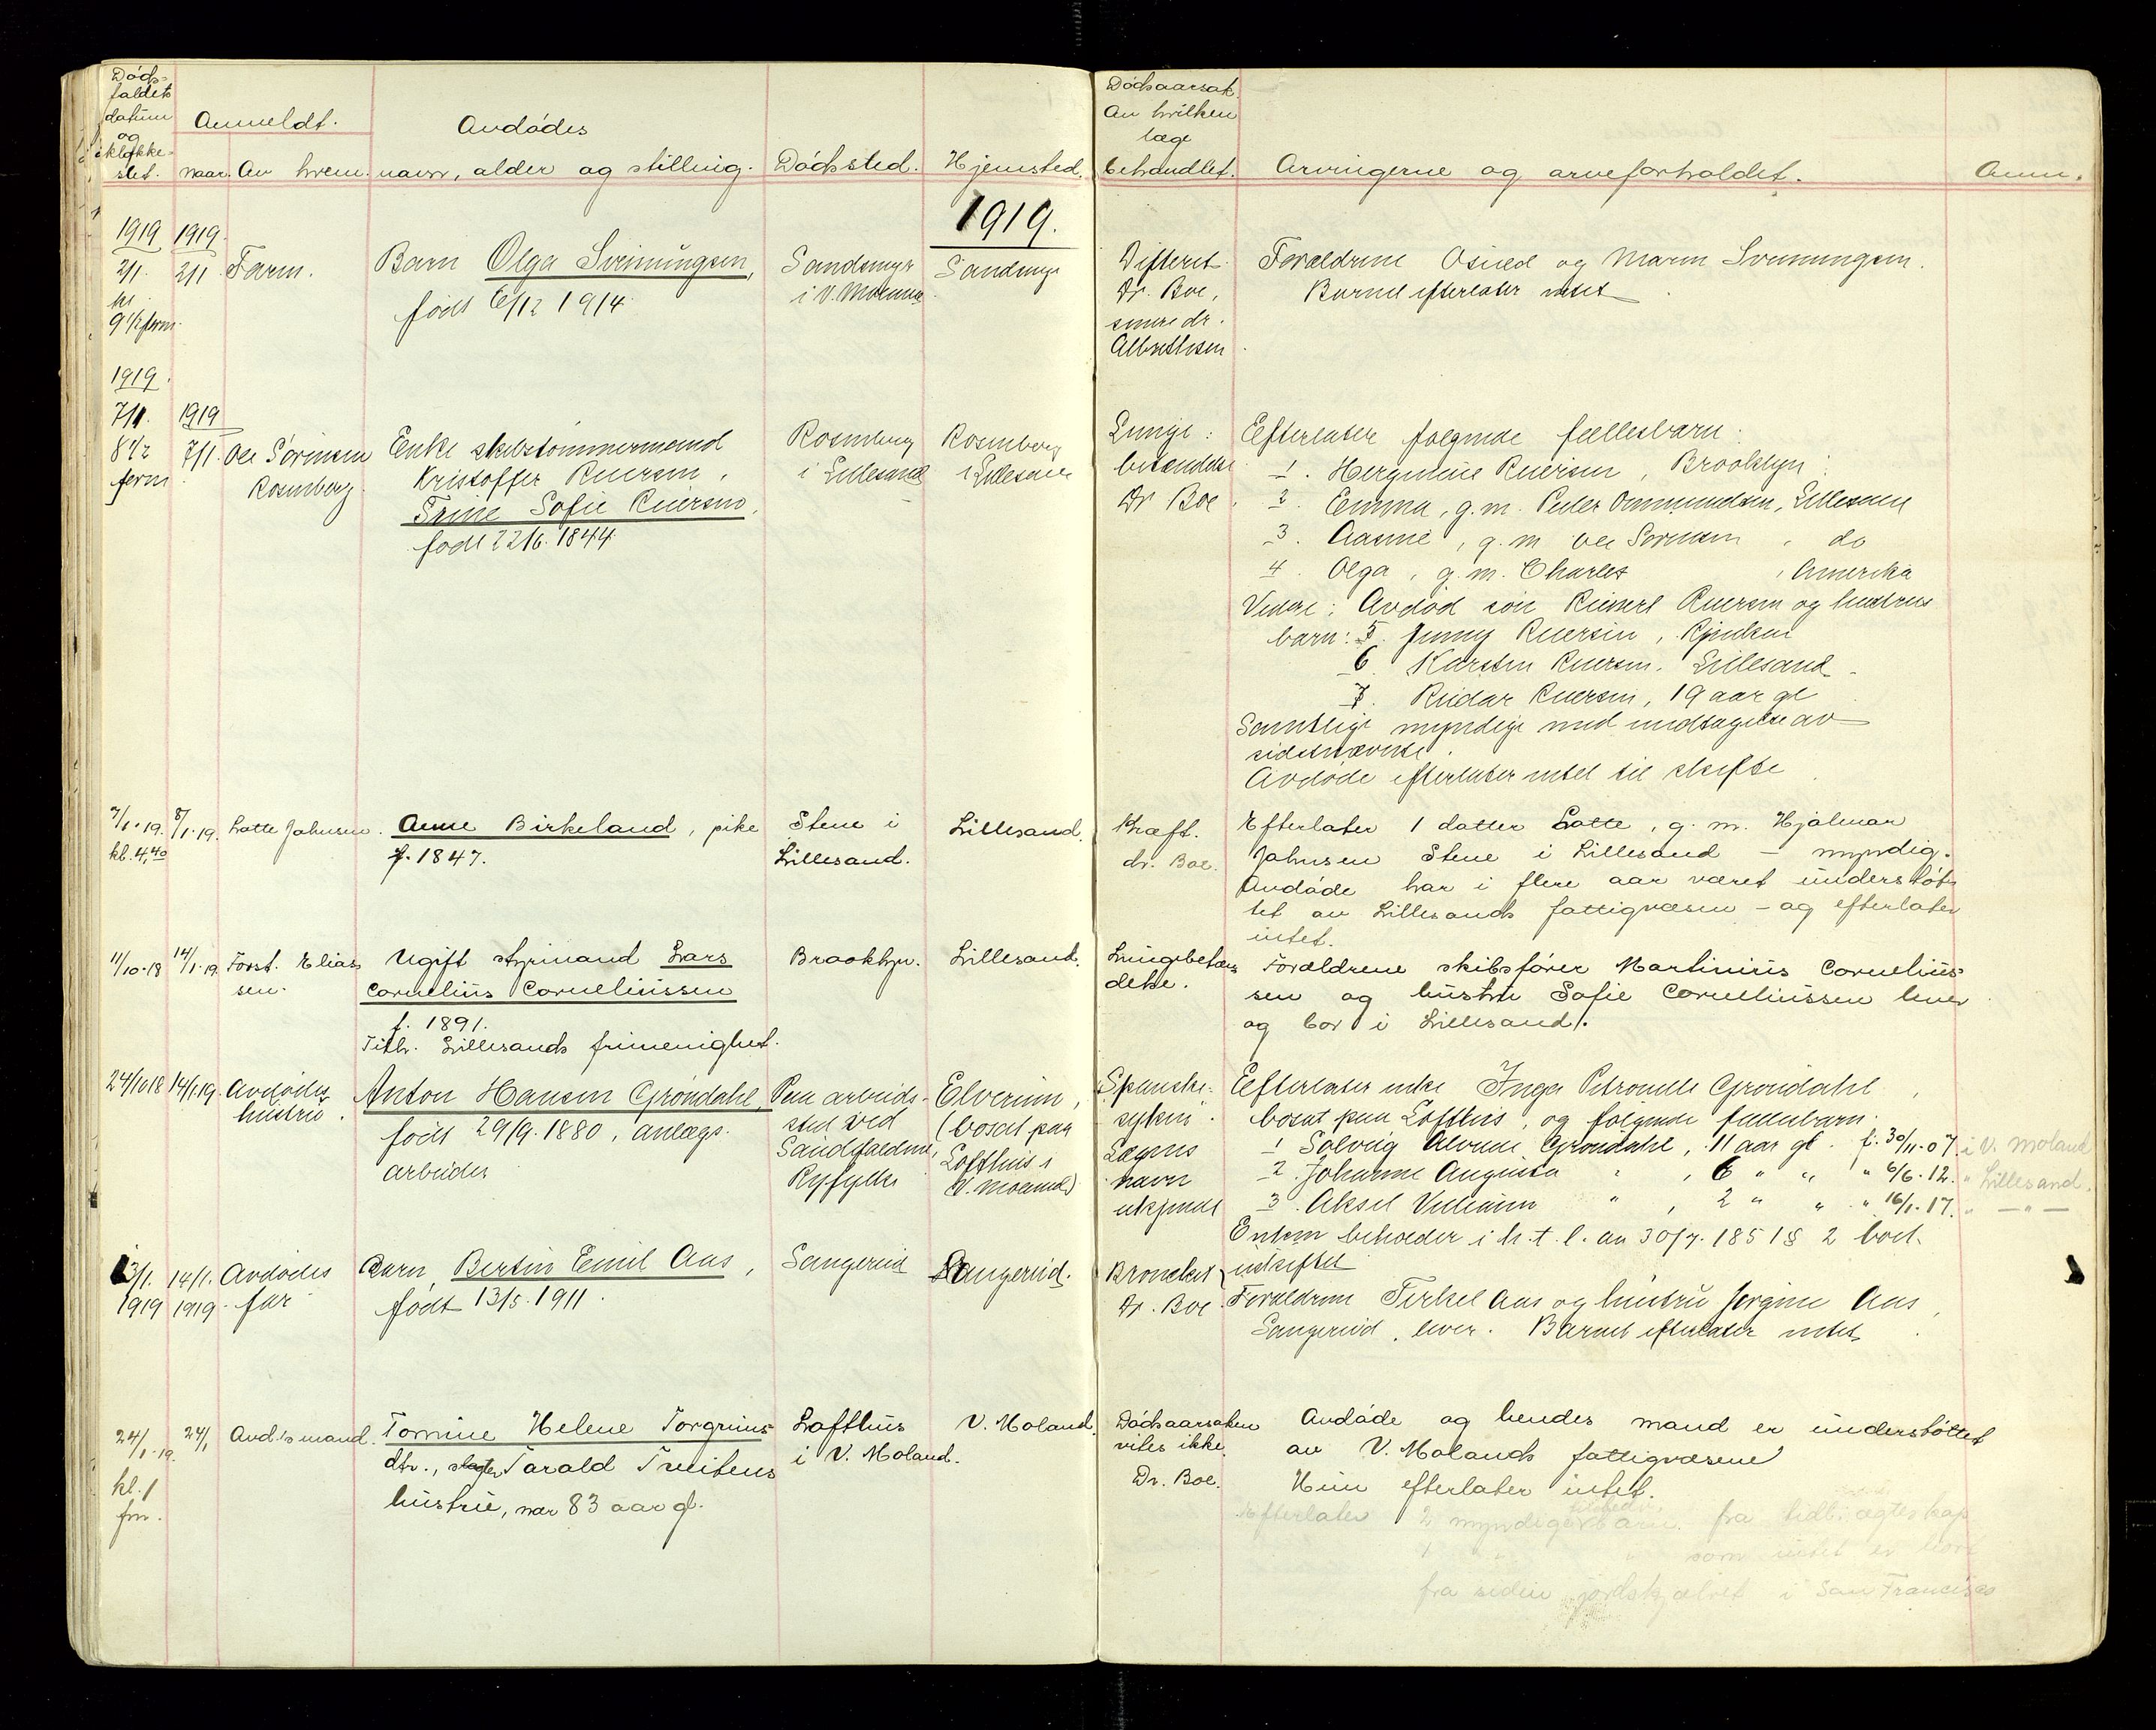 Døds-
faldets
datum
og
klokke-
slet.
Anmeldt.
naar. Av hvem.
Avdødes
navn, alder og stilling.
Dødssted.
Hjemsted.
Dødsaarsak.
Av hvilken
læge
behandlet.
Arvingerne og arveforholdet.
Anm.
1919.
1919
2/1.
kl.
9 1/2 form.
1919.
2/1
Farm.
Barn Olga Sveinungsen,
født 6/12 1914.
Sandsmyr
i V. Moland
Sandsmyr
Difterit
Dr. Boe,
senere dr.
Albrethsen
Forældrene Osuld og Maren Sveinungsen.
Barnet efterlater intet.
1919.
7/1.
8 1/2
form
1919
7/1.
Ole Sørensen
Rosenberg.
Enke skibstømmermand
Kristoffer Reiersen,
Trine Sofie Reiersen,
født 22/6. 1844.
Rosenberg
i Lillesand
Rosenberg
i Lillesand
Lunge:
betændelse
Dr Boe.
Efterlater følgende fællesbarn:
1. Hergmine Reiersen, Brooklyn.
2. Emma, g.m. Peder Ommundsen, Lillesand
3. Aasine, g.m Ole Sørensen, do
4. Olga, g.m. Charles , Amerika
Videre: Avdød søn Reinert Reiersen og hustrus
barn: 5. Jenny Reiersen, Rjukan
6. Karsten Reiersen. Lillesand.
7. Reidar Reiersen, 19 aar gl
Samtlige myndige med undtagelse av
sidstnævnte.
Avdøde efterlater intet til skifte.
7/1.19.
kl. 4,40
8/1.19.
Lotte Johnsen.
Anne Birkeland, pike
f. 1847.
Stene i
Lillesand.
Lillesand.
Kræft.
dr. Boe.
Efterlater 1 datter Lotte, g. m. Hjalmar
Johnsen Stene i Lillesand – myndig.
Avdøde har i flere aar været understøt-
tet av Lillesands fattigvæsen – og efterlater
intet.
11/10-18
14/1.19.
Forst. Elias-
sen.
Ugift styrmand Lars
Cornelius Corneliussen
f. 1891.
Tilh. Lillesands frimenighet.
Brooklyn.
Lillesand.
Lungebetæn-
delse.
Forældrene skibsfører Martinius Cornelius-
sen og hustru Sofie Corneliussen lever
og bor i Lillesand.
24/10 18
14/1.19.
Avdødes
hustru.
Anton Hansen Grøndahl,
født 29/9. 1880, anlægs-
arbeider
Paa arbeids-
sted ved
Sandsfaldene,
Ryfylke
Elverum,
(bosat paa
Lofthus i
V. Moland)
Spanske-
syken.
Lægens
navn
ukjendt
Efterlater enke Inga Petronelle Grøndahl,
bosat paa Lofthus, og følgende fællesbarn.
1 Solveig Alvilde Grøndahl, 11 aar gl. f. 30/11-07. i V. Moland
2. Johanne Augusta " , 6 " " " 6/6.12. " Lillesand.
3. Aksel Villiam " , 2 " " " 16/1.17. " — " —
Enken beholder i h.t. l. av 30/7.1851 § 2 boet
uskiftet
13/1.
1919
14/1.
1919.
Avdødes
far
Barn Bertin Emil Aas,
født 13/5. 1911.
Sangereid
Sangereid.
Bronckit
Dr. Boe.
Forældrene Terkel Aas og hustru Jørgine Aas,
Sangereid, lever. Barnet efterlater intet.
24/1.19.
kl. 1
fm.
24/1
Avd.s mand.
Tomine Helene Torgrims-
dtr., Tarald Tveitens
hustru, var 83 aar gl.
Lofthus
i V. Moland.
V. Moland.
Dødsaarsaken
vites ikke.
Dr. Boe.
Avdøde og hendes mand er understøttet
av V. Molands fattigvæsen
Hun efterlater intet.
Efterlater 2 myndige barn fra tidl. ægteskap
1 " " som intet er hørt
fra siden jordskjælvet i San Francisco